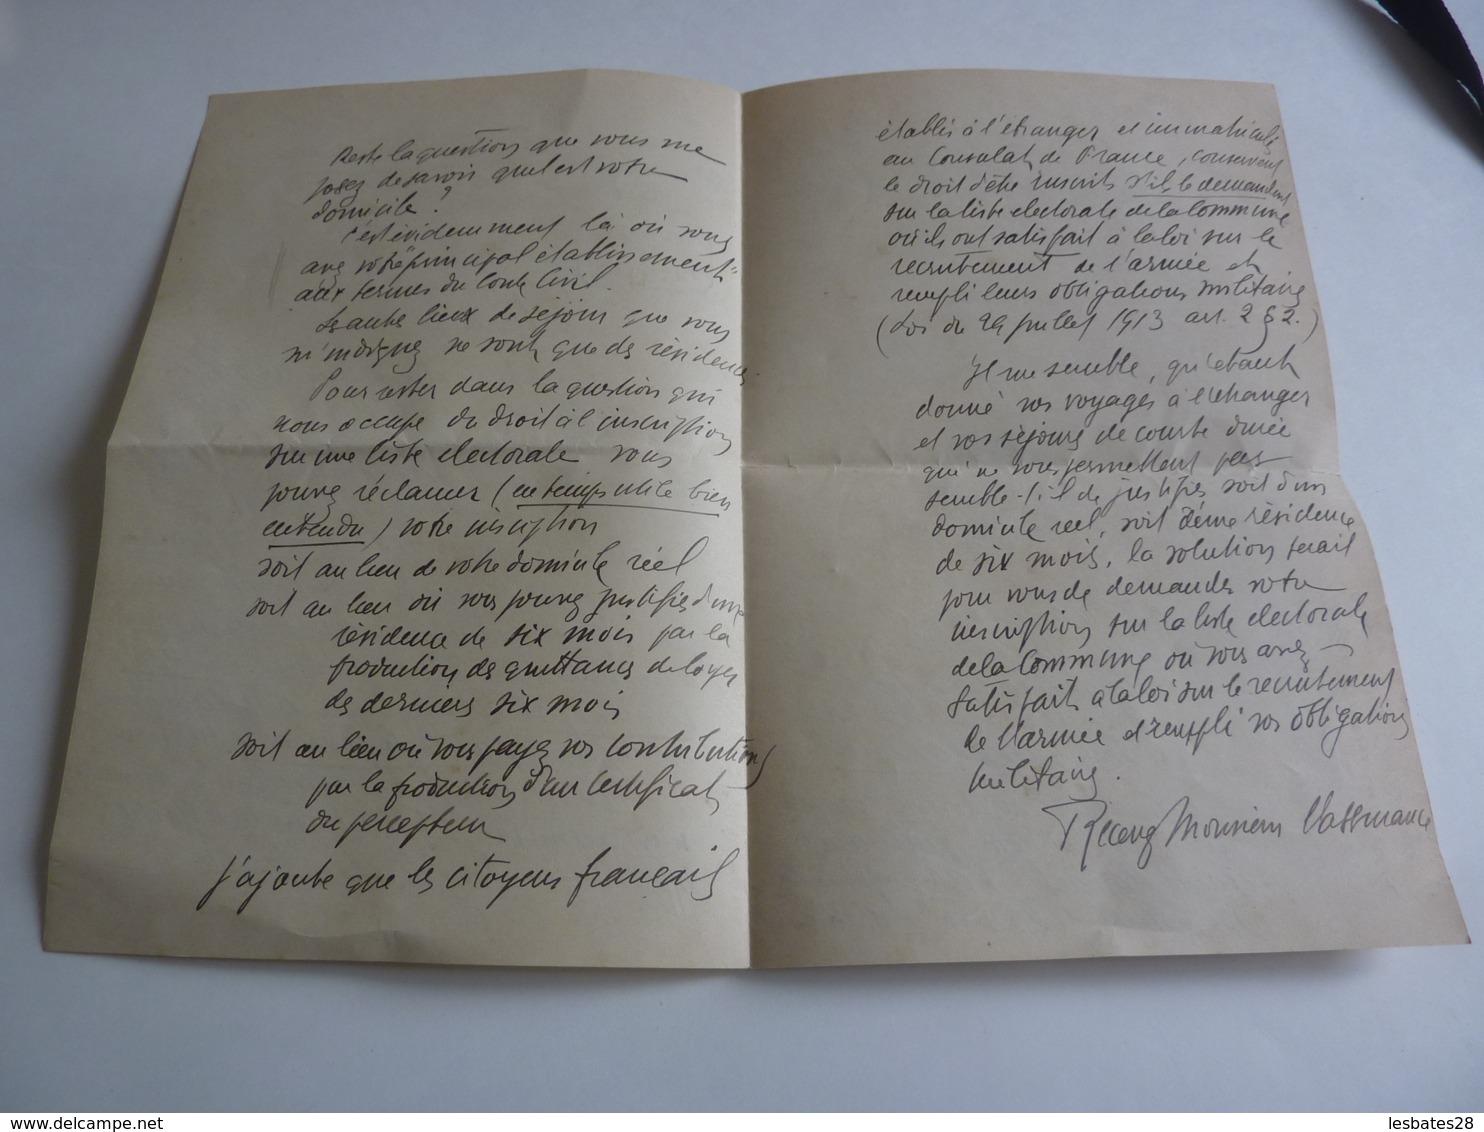 Reste la question que vous me
posez de savoir quel est votre
domicile ?
C'est évidemment là où vous
avez votre "principal établissement"
aux termes du Code Civil.
Les autres lieux de séjour que vous
m'indiquez ne sont que des résidences
Pour rester dans la question qui
nous occupe du droit à l'inscription
sur une liste électorale vous
pouvez réclamer (en temps utile bien
entendu) votre inscription
soit au lieu de votre domicile réel
soit au lieu où vous pouvez justifier d'une
résidence de six mois par la
production de quittances de loyer
des derniers six mois
soit au lieu où vous payez vos contributions
par la production d'un certificat
du percepteur
J'ajoute que les citoyens français
établis à l'étranger et immatriculés
au Consulat de France, conservent
le droit d'être inscrits s'ils le demandent
sur la liste électorale de la Commune
où ils ont satisfait à la loi sur le
recrutement de l'armée et
rempli leurs obligations militaires
(Loi du 29 juillet 1913 art. 2 § 2.)
Il me semble, qu'étant
donné vos voyages à l'étranger
et vos séjours de courte durée
qui ne vous permettent pas
semble-t-il de justifier soit d'un
domicile réel, soit d'une résidence
de six mois, la solution serait
pour vous de demander votre
inscription sur la liste électorale
de la Commune où vous avez
satisfait à la loi sur le recrutement
de l'armée et rempli vos obligations
militaires.
Recevez Monsieur l'assurance
delcampe.net
lesbates28